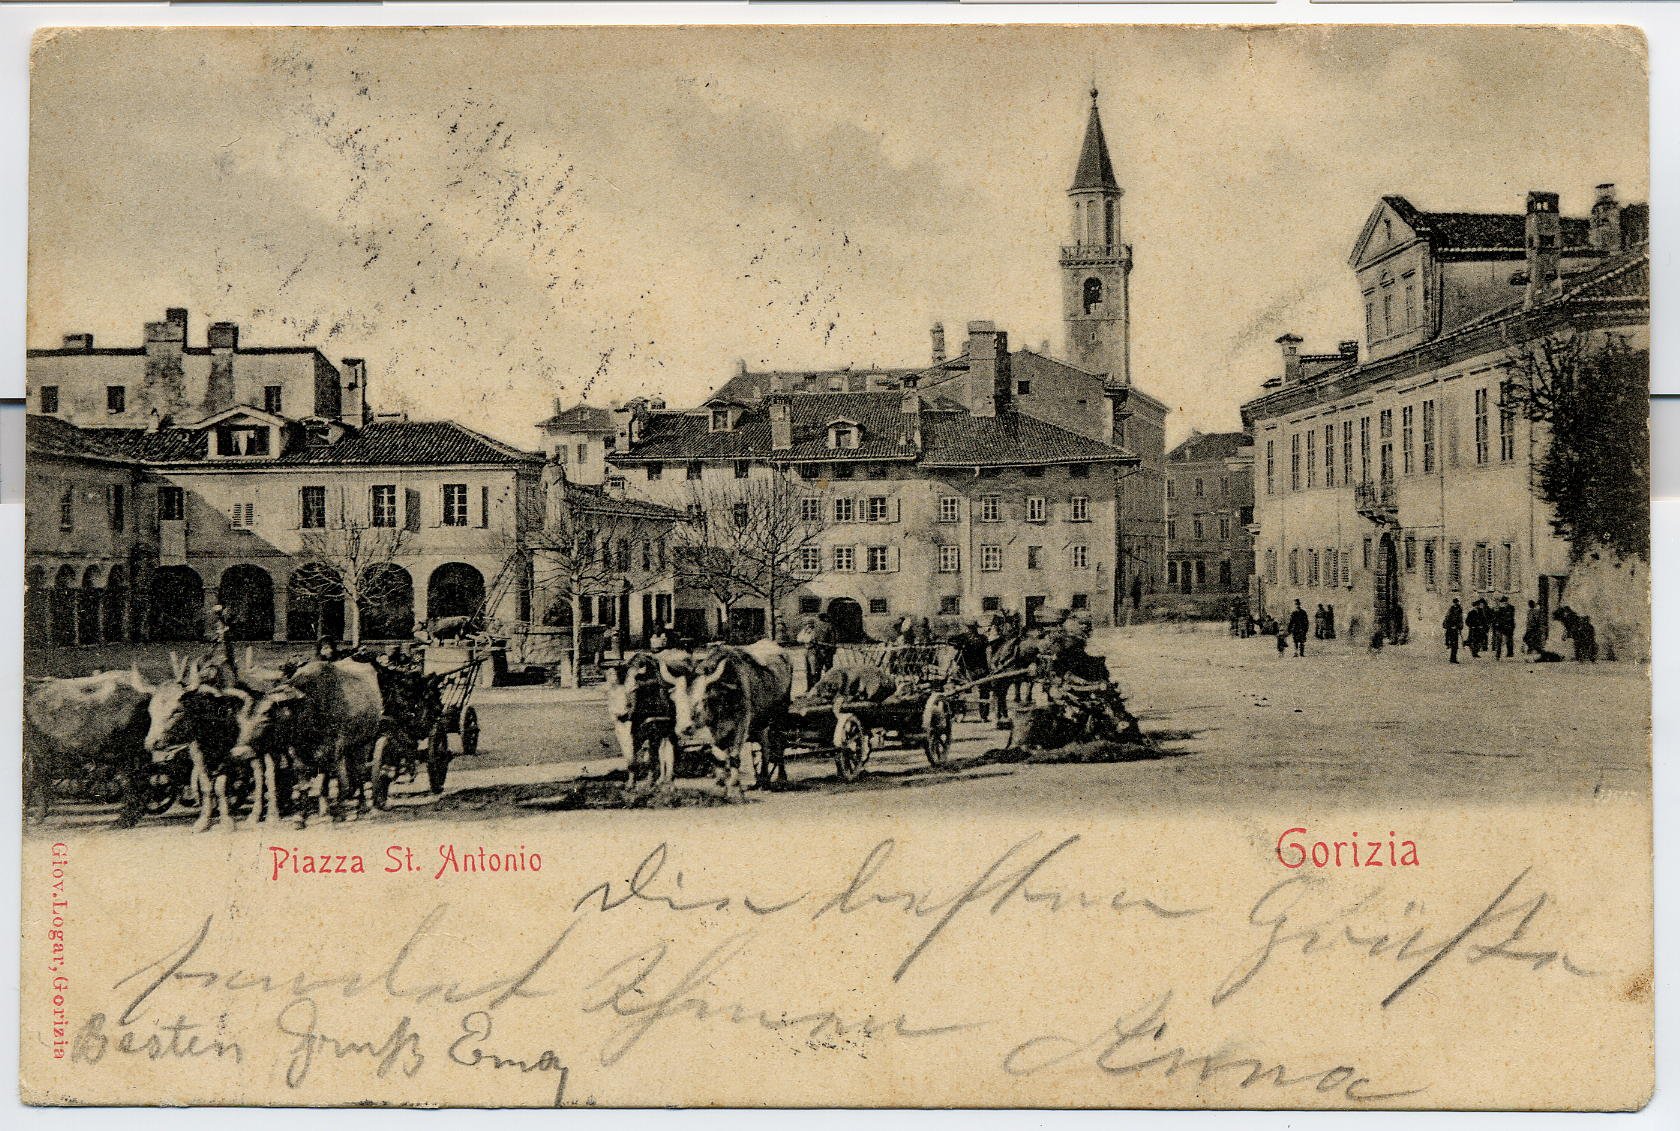 Piazza St. Antonio
Gorizia
Die besten Grüße
sendet Ihnen
Anna
Besten Gruß Ema
Giov. Logar, Gorizia